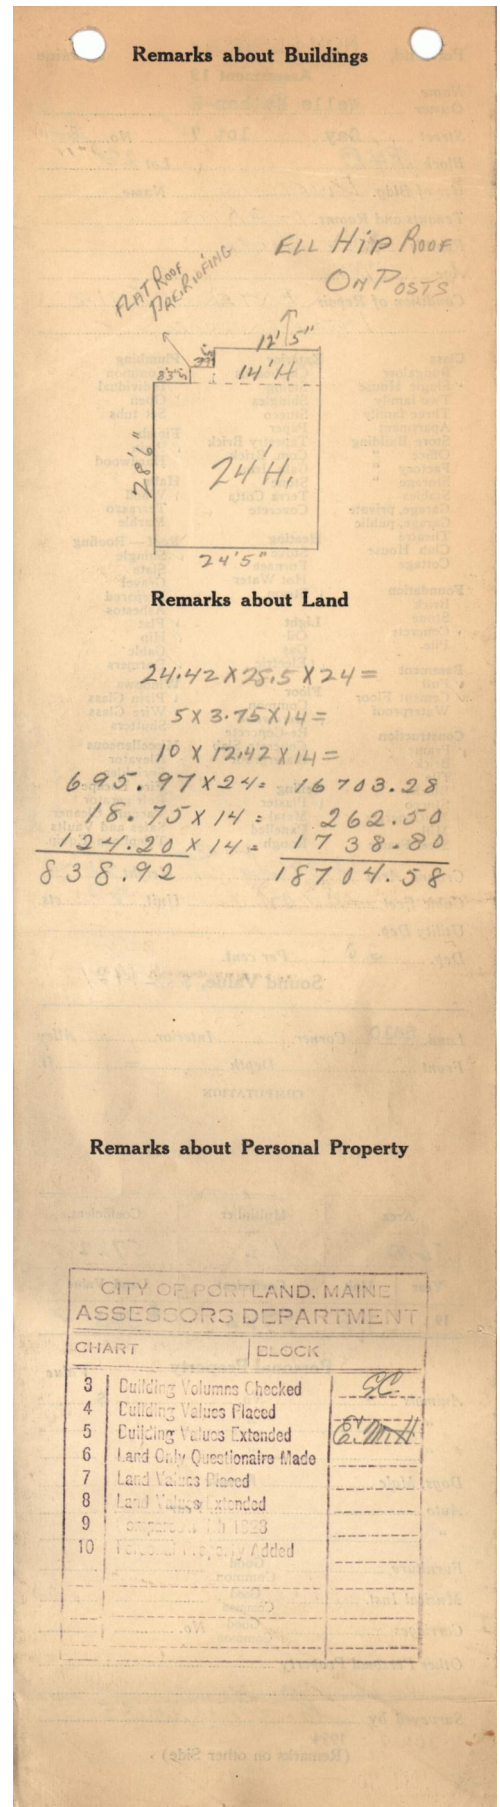 Remarks about Buildings
ELL HIP ROOF
ON POSTS
FLAT ROOF
12' 5"
14' H
28' 6"
24' H.
24' 5"
Remarks about Land
24.42 X 28.5 X 24 =
5 X 3.75 X 14 =
10 X 12.42 X 14 =
695.97 X 24 = 16703.28
18.75 X 14 = 262.50
124.20 X 14 = 1738.80
838.92 18704.58
Remarks about Personal Property
CITY OF PORTLAND, MAINE
ASSESSORS DEPARTMENT
CHART BLOCK
3 Building Volumns Checked
4 Building Values Placed
5 Building Values Extended
6 Land Only Questionaire Made
7 Land Values Placed
8 Land Values Extended
9 1923
10 Personal Property Added